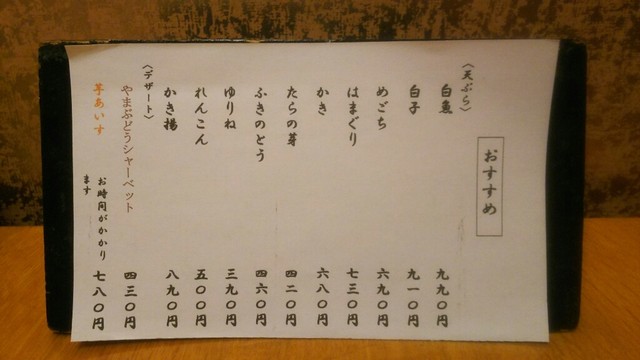 おすすめ
〈天ぷら〉
白魚 九九〇円
白子 九一〇円
めごち 六九〇円
はまぐり 七三〇円
かき 六八〇円
たらの芽 四二〇円
ふきのとう 四六〇円
ゆりね 三九〇円
れんこん 五〇〇円
かき揚 八九〇円
〈デザート〉
やまぶどうシャーベット 四三〇円
芋あいす お時間がかかり
ます 七八〇円